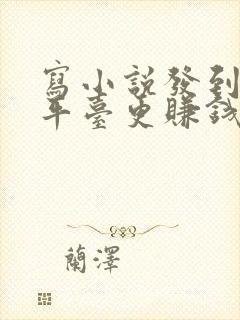 寫小說發到
平臺更賺錢
蘭澤